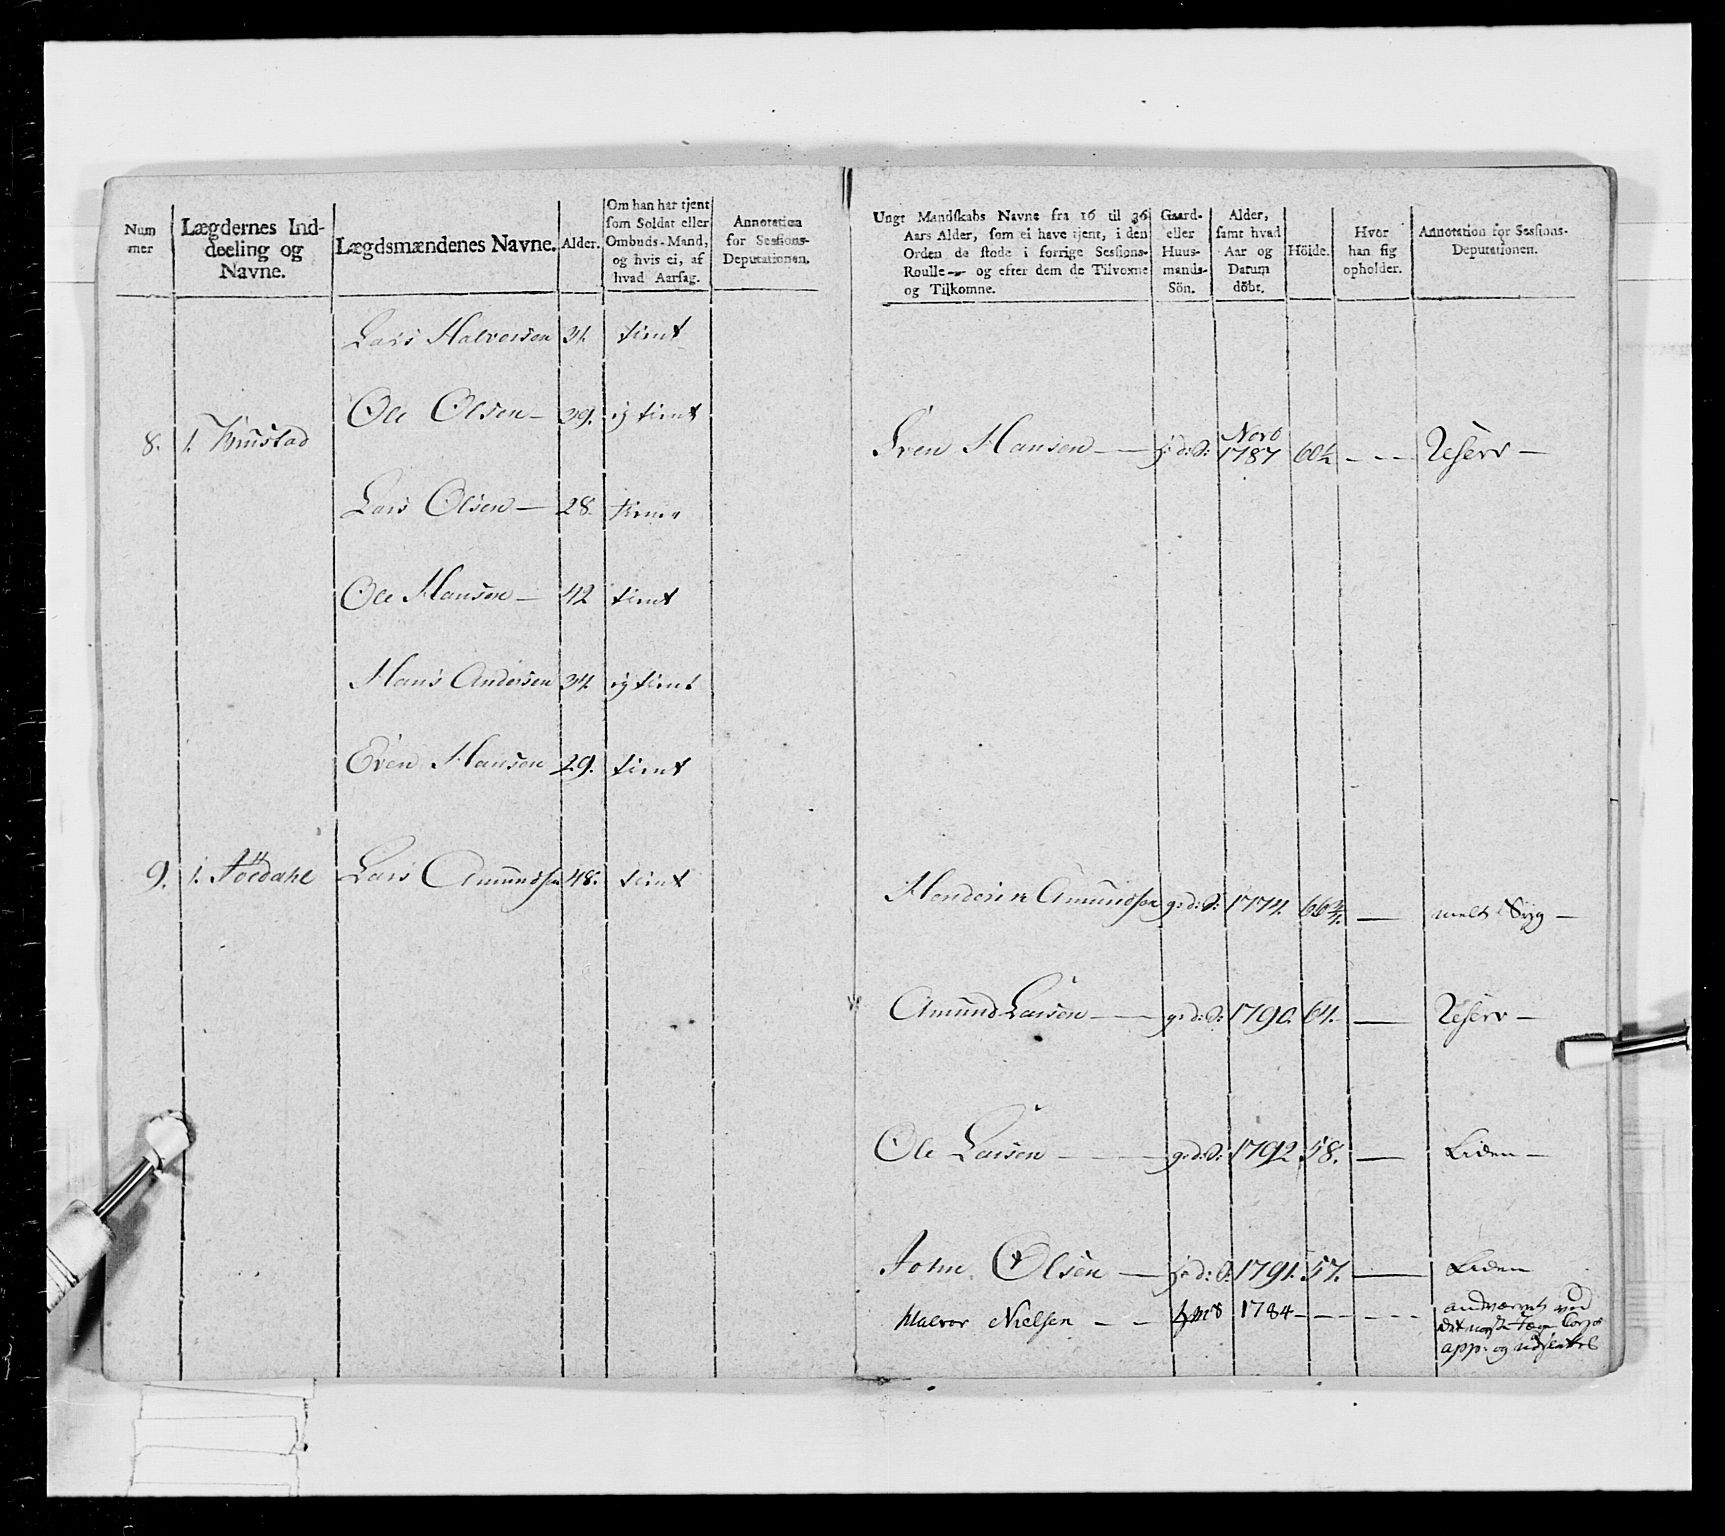 Num
mer
Lægdernes Ind-
deeling og
Navne.
Lægdsmændenes Navne.
Alder.
Om han har tjent
som Soldat eller
Ombuds-Mand,
og hvis ei, af
hvad Aarsag.
Annotation
for Sessions-
Deputationen.
Ungt Mandskabs Navne fra 16 til 36
Aars Alder, som ei have tjent, i den
Orden de stode i forrige Sessions-
Roulle — og efter dem de Tilvoxne
og Tilkomne.
Gaard-
eller
Huus-
mands-
Sön.
Alder,
samt hvad
Aar og
Datum
döbt.
Höide.
Hvor
han sig
opholder.
Annotation for Sessions-
Deputationen.
Lars Halvorsen 31. tient
Ole Olsen — 39. ej tient
8. 1.
Lars Olsen — 28.
Ole Hansen — 42 tient
Hans Andersen 34. ej tient
Even Hansen 29. tient
9. 1. Lars Amundsen 48. tient
Even Hansen — Novb
1787 60½ — Reserv —
Amundsen g:d:S: 1774. 66¾. — meldt Syg —
Amund Larsen — g:d:S: 1790. 64. — Reserv —
Ole Larsen — g:d:S: 1792 58. — Liden —
John Olsen — 1791. 57. — Liden
Halvor Nielsen — 1784 —
app: og